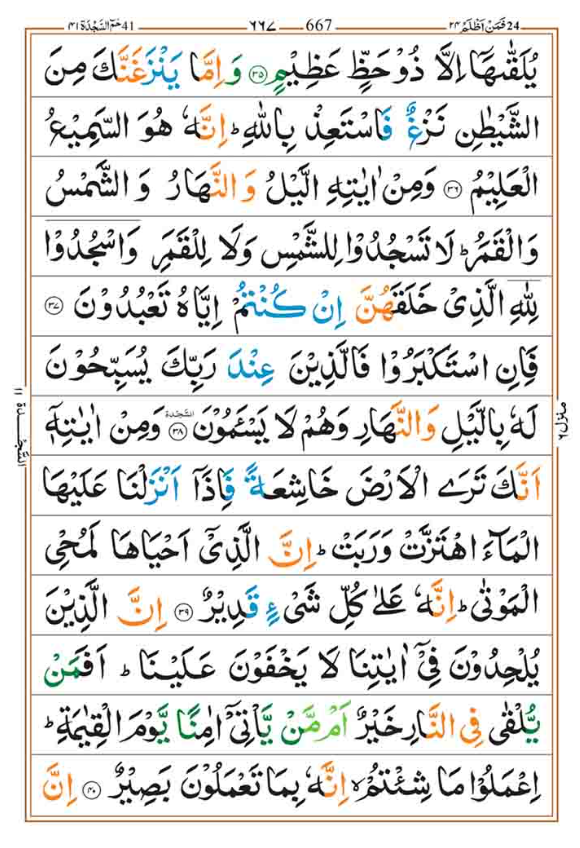 فَمَنْ اَظْلَمُ ۲۴ 24
۶۶۷ 667
حٰمٓ السَّجْدَة ۴۱ 41
يُلَقّٰىهَاۤ اِلَّا ذُوْ حَظٍّ عَظِيْمٍ ۝۳۵ وَاِمَّا يَنْزَغَنَّكَ مِنَ
الشَّيْطٰنِ نَزْغٌ فَاسْتَعِذْ بِاللّٰهِ ؕ اِنَّهٗ هُوَ السَّمِيْعُ
الْعَلِيْمُ ۝۳۶ وَمِنْ اٰيٰتِهِ الَّيْلُ وَالنَّهَارُ وَالشَّمْسُ
وَالْقَمَرُ ؕ لَا تَسْجُدُوْا لِلشَّمْسِ وَلَا لِلْقَمَرِ وَاسْجُدُوْا
لِلّٰهِ الَّذِىْ خَلَقَهُنَّ اِنْ كُنْتُمْ اِيَّاهُ تَعْبُدُوْنَ ۝۳۷
فَاِنِ اسْتَكْبَرُوْا فَالَّذِيْنَ عِنْدَ رَبِّكَ يُسَبِّحُوْنَ
لَهٗ بِالَّيْلِ وَالنَّهَارِ وَهُمْ لَا يَسْـَٔمُوْنَ ۝۳۸ السَّجْدَة وَمِنْ اٰيٰتِهٖۤ
اَنَّكَ تَرَى الْاَرْضَ خَاشِعَةً فَاِذَاۤ اَنْزَلْنَا عَلَيْهَا
الْمَآءَ اهْتَزَّتْ وَرَبَتْ ؕ اِنَّ الَّذِىْۤ اَحْيَاهَا لَمُحْىِ
الْمَوْتٰى ؕ اِنَّهٗ عَلٰى كُلِّ شَىْءٍ قَدِيْرٌ ۝۳۹ اِنَّ الَّذِيْنَ
يُلْحِدُوْنَ فِىْۤ اٰيٰتِنَا لَا يَخْفَوْنَ عَلَيْنَا ؕ اَفَمَنْ
يُّلْقٰى فِى النَّارِ خَيْرٌ اَمْ مَّنْ يَّاْتِىْۤ اٰمِنًا يَّوْمَ الْقِيٰمَةِ ؕ
اِعْمَلُوْا مَا شِئْتُمْ ۙ اِنَّهٗ بِمَا تَعْمَلُوْنَ بَصِيْرٌ ۝۴۰ اِنَّ
منزل ۶
السَّجْدَة ۱۱